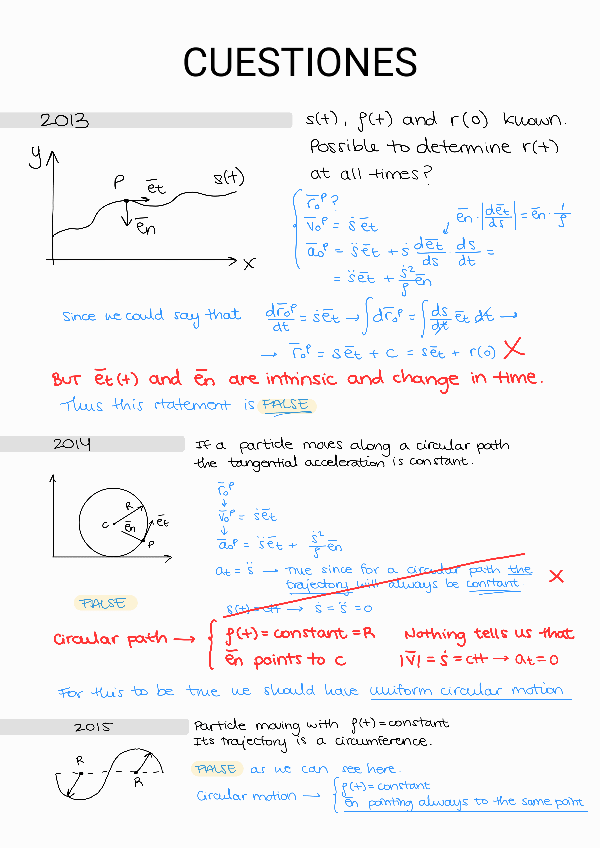 CUESTIONES
2013
s(t), ρ(t) and r(0) known.
Possible to determine r(t)
at all times?
y
P
ēt
s(t)
ēn
x
r̄₀ᴾ ?
v̄₀ᴾ = ṡ ēt
ēn · |dēt/ds| = ēn · 1/ρ
ā₀ᴾ = s̈ ēt + ṡ dēt/ds ds/dt =
= s̈ ēt + ṡ²/ρ ēn
Since we could say that dr̄₀ᴾ/dt = ṡ ēt → ∫dr̄₀ᴾ = ∫ds/dt ēt dt →
→ r̄₀ᴾ = s ēt + C = s ēt + r(0) X
But ēt(t) and ēn are intrinsic and change in time.
Thus this statement is FALSE
2014
If a particle moves along a circular path
the tangential acceleration is constant.
R
C
ēn
ēt
P
r̄₀ᴾ
↓
v̄₀ᴾ = ṡ ēt
↓
ā₀ᴾ = s̈ ēt + ṡ²/ρ ēn
at = s̈ → True since for a circular path the
trajectory will always be constant
X
FALSE
s(t) = ctt → ṡ = s̈ = 0
Circular path → { ρ(t) = constant = R
ēn points to C
Nothing tells us that
|v̄| = ṡ = ctt → at = 0
For this to be true we should have uniform circular motion
2015
Particle moving with ρ(t) = constant
Its trajectory is a circumference.
R
R
FALSE as we can see here.
Circular motion → { ρ(t) = constant
ēn pointing always to the same point